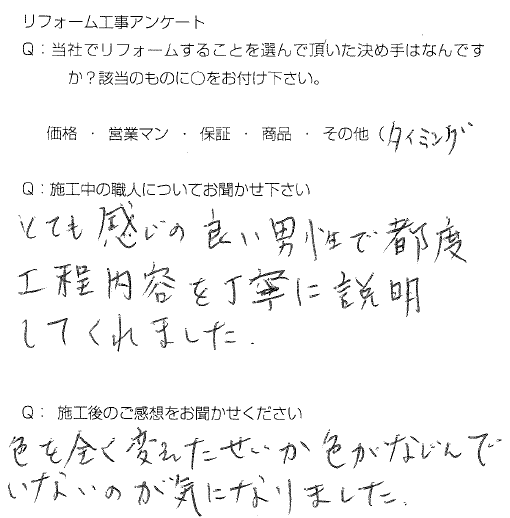 リフォーム工事アンケート
Q：当社でリフォームすることを選んで頂いた決め手はなんです
か？該当のものに○をお付け下さい。
価格 ・ 営業マン ・ 保証 ・ 商品 ・ その他（タイミング
Q：施工中の職人についてお聞かせ下さい
とても感じの良い男性で都度
工程内容を丁寧に説明
してくれました.
Q： 施工後のご感想をお聞かせください
色を全く変えたせいか色がなじんで
いないのが気になりました.